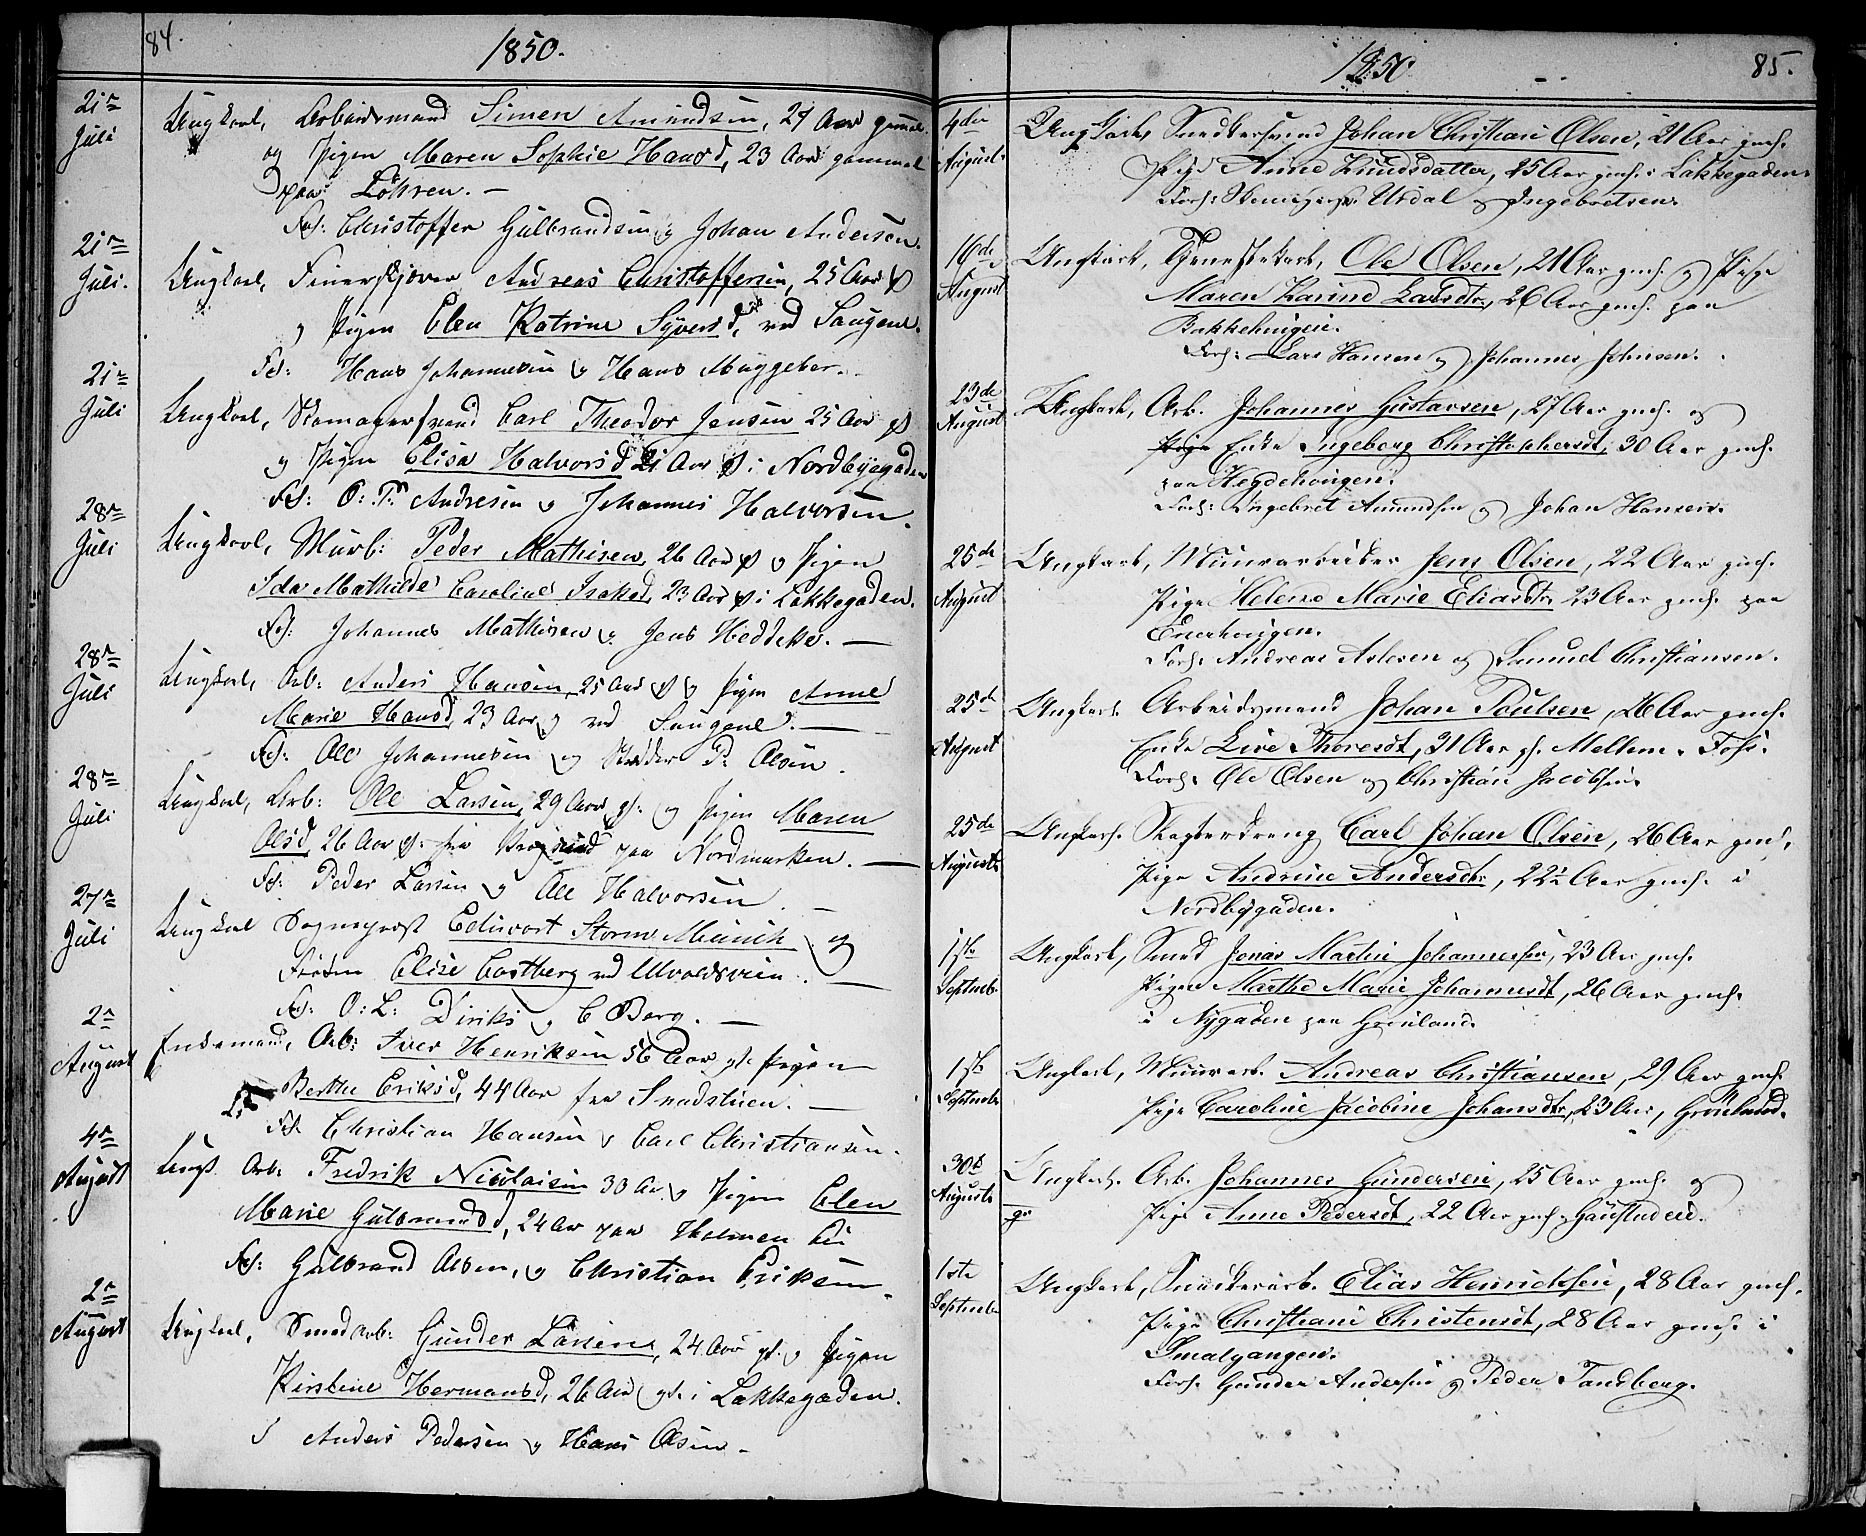 84.
1850.
21de Juli
Ungkarl, Arbeidsmand Simen Amundsen, 24 Aar gammel
og Pigen Maren Sophie Hansd, 23 Aar gammel
paa Løkren. —
Fol: Christoffer Gulbrandsen og Johan Andersen.
21de Juli.
Ungkarl, Andreas Christoffersen, 25 Aar gl
og Pigen Elen Katrine Syversd, ved Saugene.
Fol: Hans Johannesen og Hans Muggeber.
21de Juli
Ungkarl, Skomagersvend Carl Theodor Jensen 25 Aar gl
og Pigen Elisa Halvorsd 21 Aar gl i Nordbyegaden
Fol: O: P: Andresen og Johannes Halvorsen.
28de Juli
Ungkarl, Murb: Peder Mathisen, 26 Aar gl og Pigen
Ida Mathilde Caroline Isaksd, 23 Aar gl i Lakkegaden.
Fol: Johannes Mathisen og Jens Heddeke. —
28de Juli
Ungkarl, Arb: Anders Hansen, 25 Aar gl og Pigen Anne
Marie Hansd, 23 Aar gl ved Saugene. —
Fol: Ole Johannesen og P: Olsen.
28de Juli
Ungkarl, Arb: Ole Larsen, 29 Aar gl: og Pigen Maren
Olsd, 26 Aar gl. fra paa Nordmarken. —
Fol: Peder Larsen og Ole Halvorsen. —
27de Juli
Ungkarl Sognepræst Edvart Storm Munch og
Frøken Elise Castberg ved Ulvoldsveien. —
Fol: O: L: Diriks og C Borg. —
2de August
Enkemand, Arb: Iver Henriksen 56 Aar gl. Pigen
Berthe Eriksd, 44 Aar fra Smedstuen. —
Fol: Christian Hansen og Carl Christiansen.
4de August
Ungk. Arb: Fredrik Nicolaisen 30 Aar og Pigen Elen
Marie Gulbransd, 24 Aar paa Holmen
Fol: Gulbrand Olsen, og Christian Eriksen.
2de August
Ungkarl, Smedarb: Gunder Larsen, 24 Aar gl. og Pigen
Kirstine Hermansd, 26 Aar gl. i Lakkegaden.
Anders Pedersen og Hans Olsen. —
1850
85.
4de August.
Ungkarl, Snedkersvend Johan Christian Olsen, 21 Aar gml.
Pige Anne Knudsdatter, 25 Aar gml. i Lakkegaden.
Forl: Urdal og Ingebretsen.
16de August
Ungkarl, Tjenestekarl, Ole Olsen, 21 Aar gml. og Pige
Maren Karine Larsdtr, 26 Aar gml. paa
Bakkehougen.
Forl: Lars Hansen og Johannes Johnsen.
23de August
Ungkarl, Arb. Johannes Gustavsen, 27 Aar gml. og
Pige Enke Ingeborg Christophersdt, 30 Aar gml.
paa Hegdehougen.
Forl: Engebret Amundsen og Johan Hansen.
25de August
Ungkarl, Muurarbeider Jens Olsen, 22 Aar gml.
Pige Helene Marie Eliasdtr 23 Aar gml. paa
Enerhougen.
Forl: Andreas Aslesen og Samuel Christiansen.
25de August
Ungkarl. Arbeidsmand Johan Poulsen, 26 Aar gml.
Enke Live Thoresdt, 31 Aar gl. Mellem-Foss.
Forl: Ole Olsen og Christian Jacobsen.
25de August
Ungkarl. Slagterdreng Carl Johan Olsen, 26 Aar gml.
Pige Andrine Andersdtr, 22½ Aar gml. i
Nordbygaden.
1ste Septneb.
Ungkarl, Smed Jonas Martin Johannesen, 23 Aar gml.
Pigen Marthe Marie Johannesdt, 26 Aar gml.
i Nygaden paa Grønland.
1ste Septneb.
Ungkarl, Muurarb. Andreas Christiansen, 29 Aar gml.
Pige Caroline Jacobine Johansdtr, 23 Aar, Grønland.
30te August
Ungkarl. Arb. Johannes Gundersen, 25 Aar gml. og
Pige Anne Pedersdt, 22 Aar gml. Gaustaderd.
1ste Septneb.
Ungkarl, Snedkerarb. Elias Henrichsen, 28 Aar gml.
Pige Christiane Christensdt, 28 Aar gml. i
Smalgangen.
Forl. Gunder Andersen og Peder Tandberg.